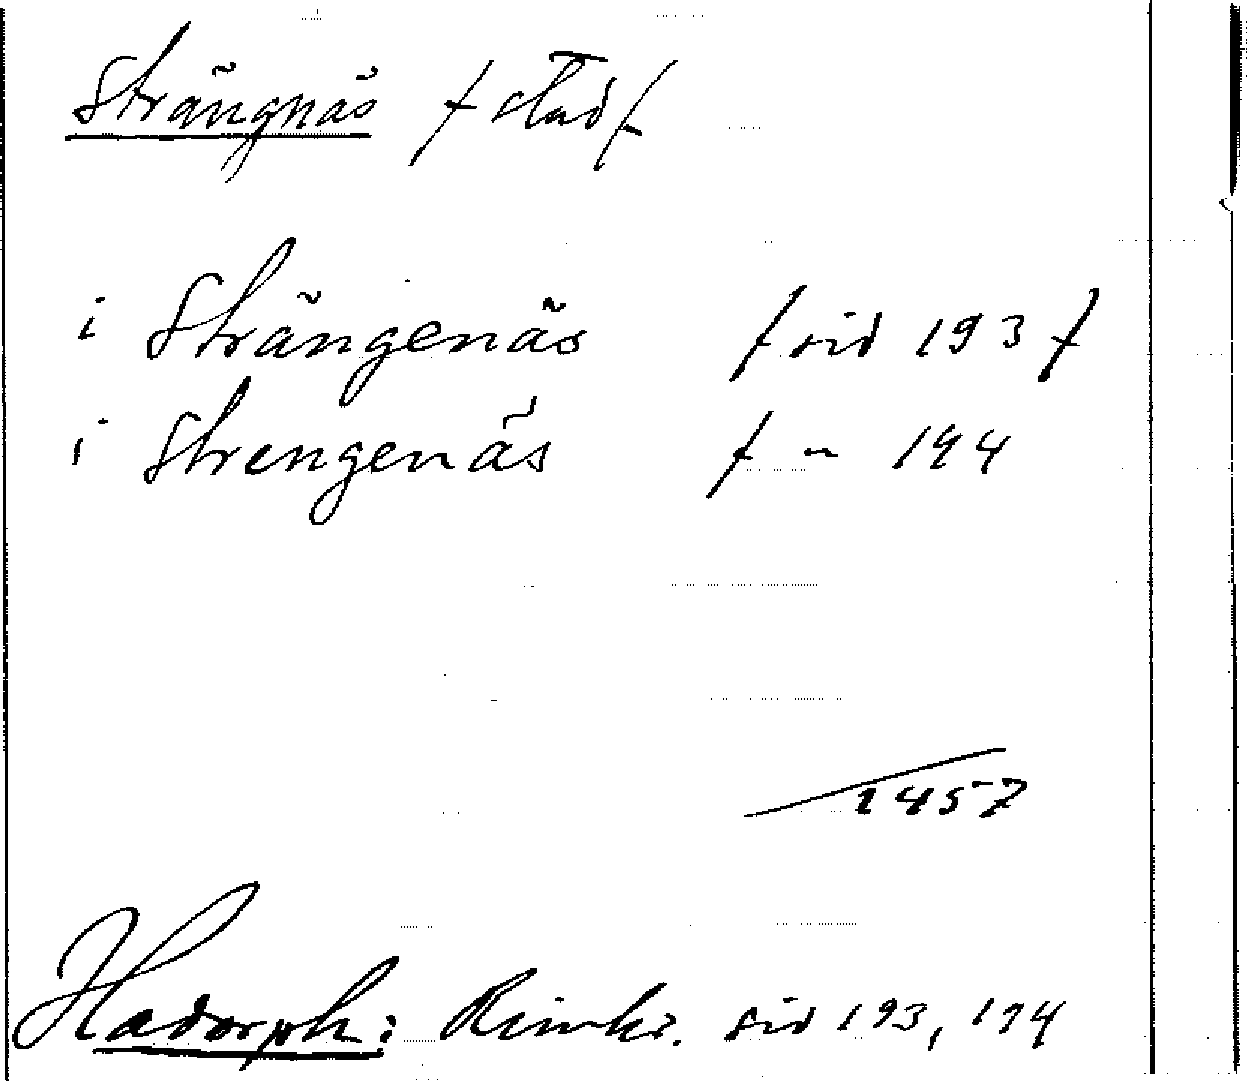 Strängnäs /stad/
i Strängenäs /sid 193/
i Strengenäs / " 194
1457
Hadorph: Rimkr. sid 193, 194